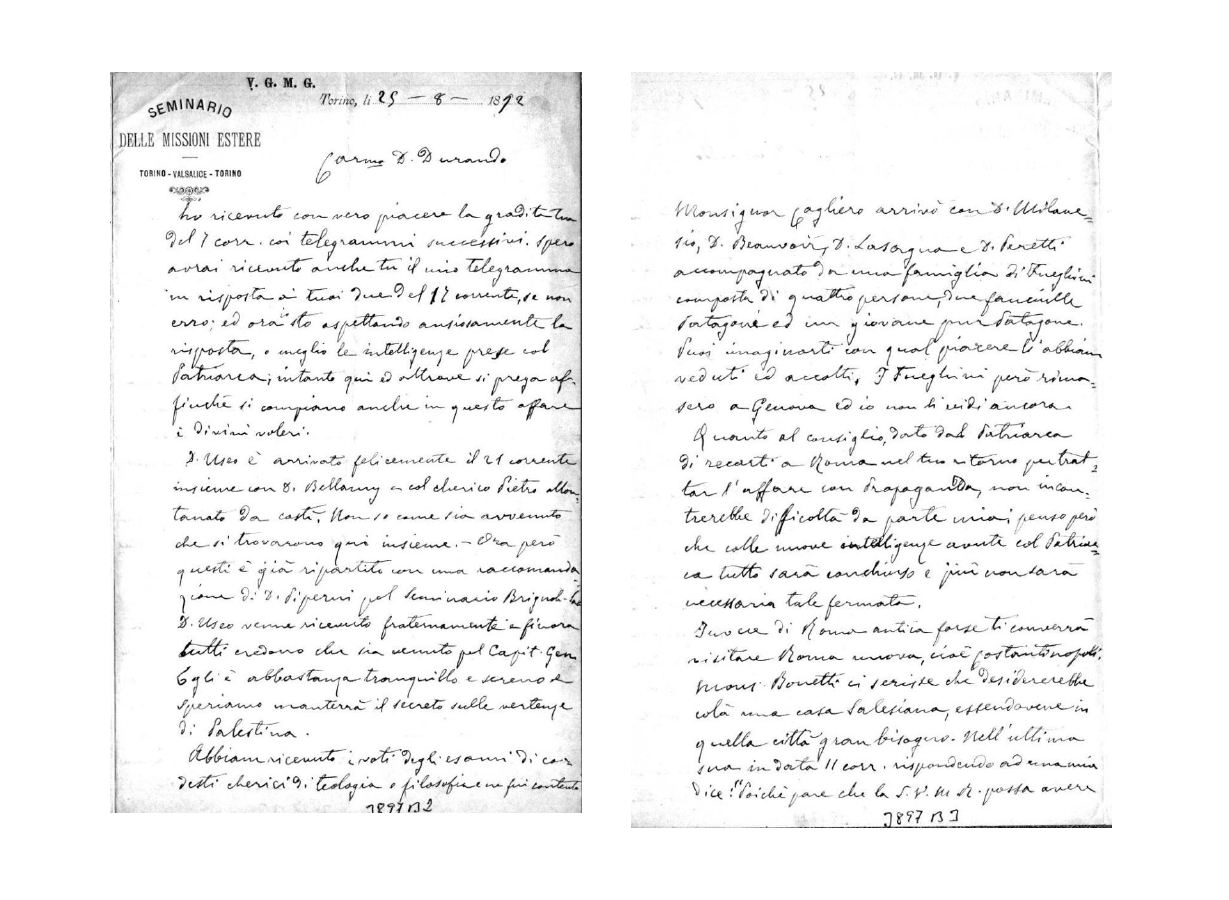 V. G. M. G.
Torino, li 25 - 8 - 1892
SEMINARIO
DELLE MISSIONI ESTERE
TORINO - VALSALICE - TORINO
Carmo D. Durando
ho ricevuto con vero piacere la gradita tua
del 7 corr. coi telegrammi successivi. Spero
avrai ricevuto anche tu il mio telegramma
in risposta a' tuoi due del 17 corrente, se non
erro; ed ora sto aspettando ansiosamente la
risposta, o meglio le intelligenze prese col
Patriarca; intanto qui ed altrove si prega af-
finchè si compiano anche in questo affare
i divini voleri.
D. Useo è arrivato felicemente il 21 corrente
insieme con D. Bellamy e col cherico Pietro allon-
tanato da costì. Non so come sia avvenuto
che si trovarono qui insieme. - Ora però
questi è già ripartito con una raccomanda-
zione di D. Piperni pel Seminario Brignole-Sale
D. Useo venne ricevuto fraternamente e finora
tutti credono che sia venuto pel Capit. Gen
Egli è abbastanza tranquillo e sereno e
speriamo manterrà il secreto sulle vertenze
di Palestina.
Abbiam ricevuto i voti degli esami di co-
desti cherici di teologia e filosofia e ne fui contento
J897 B 2
Monsignor Cagliero arrivò con D. Milane-
sio, D. Beauvoir, D. Lasagna e D. Peretti
accompagnato da una famiglia di Fueghini
composta di quattro persone, due fanciulle
Patagone ed un giovane pur Patagone.
Puoi imaginarti con qual piacere li abbiam
veduti ed accolti. I Fueghini però rima-
sero a Genova ed io non li vidi ancora.
Quanto al consiglio, dato dal Patriarca
di recarti a Roma nel tuo ritorno per trat-
tar l'affare con Propaganda, non incon-
trerebbe difficoltà da parte mia; penso però
che colle nuove intelligenze avute col Patriar-
ca tutto sarà conchiuso e più non sarà
necessaria tale fermata.
Invece di Roma antica forse ti converrà
visitare Roma nuova, cioè Costantinopoli.
Mons. Bonetti ci scrisse che desidererebbe
colà una casa Salesiana, essendovene in
quella città gran bisogno. Nell'ultima
sua in data 11 corr. rispondendo ad una mia
dice: "Poichè pare che la S. V. M. R. possa avere
J897 B 3